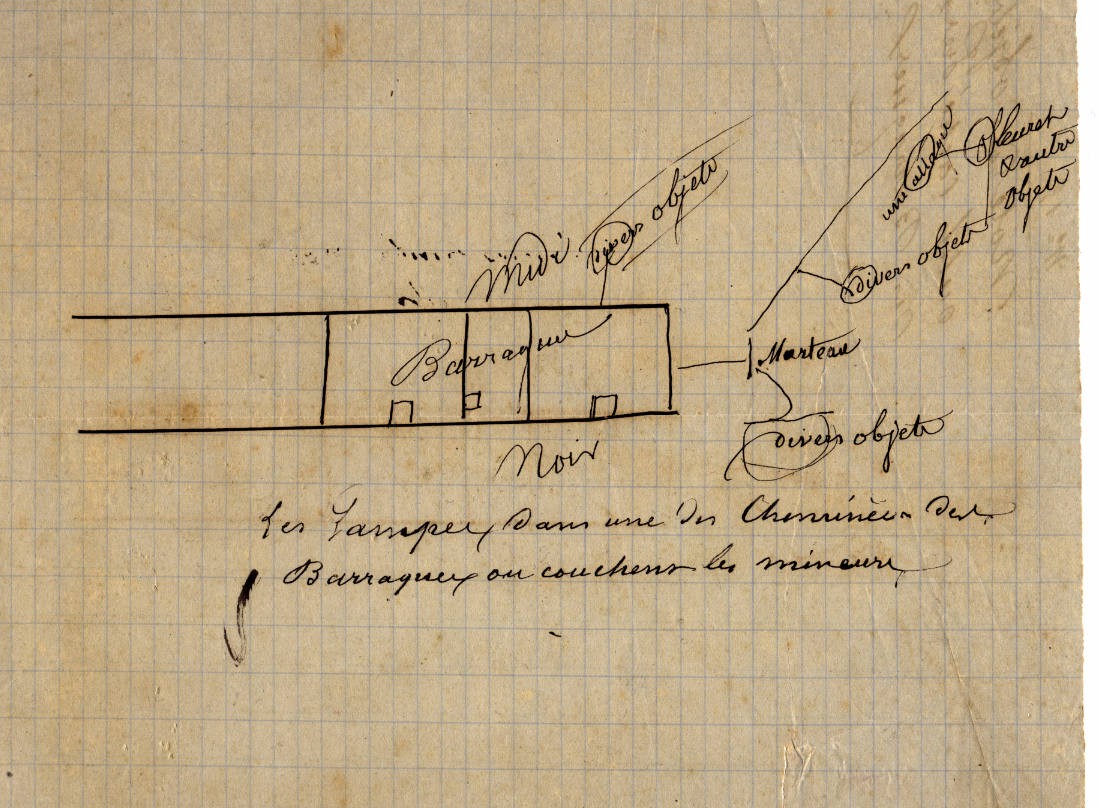 une
fleuret
& autre
objets
divers objets
divers objets
Midi
Barraque
Marteau
divers objets
Noir
Les Lampes, dans une des Cheminées des
Barraques ou couchent les mineurs